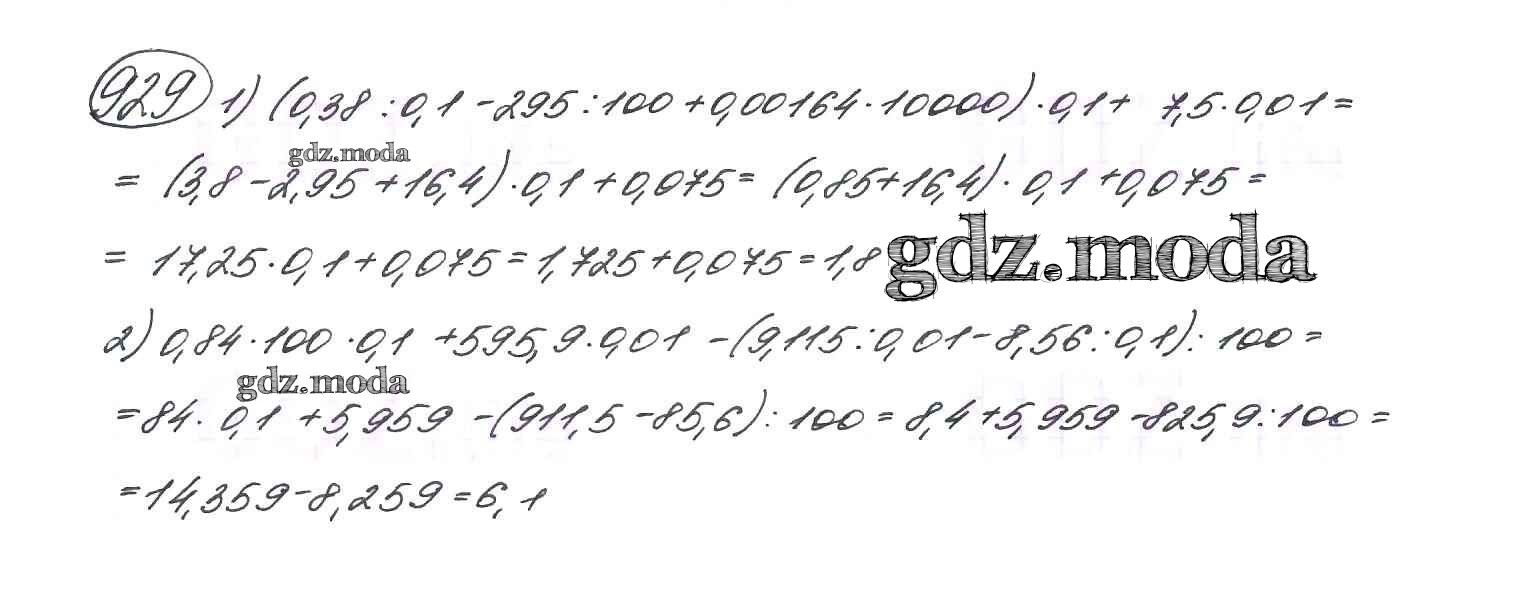 929 1) (0,38 : 0,1 - 295 : 100 + 0,00164 · 10000) · 0,1 + 7,5 · 0,01 =
gdz.moda
= (3,8 - 2,95 + 16,4) · 0,1 + 0,075 = (0,85 + 16,4) · 0,1 + 0,075 =
= 17,25 · 0,1 + 0,075 = 1,725 + 0,075 = 1,8
gdz.moda
2) 0,84 · 100 · 0,1 + 595,9 · 0,01 - (9,115 : 0,01 - 8,56 : 0,1) : 100 =
gdz.moda
= 84 · 0,1 + 5,959 - (911,5 - 85,6) : 100 = 8,4 + 5,959 - 825,9 : 100 =
= 14,359 - 8,259 = 6,1